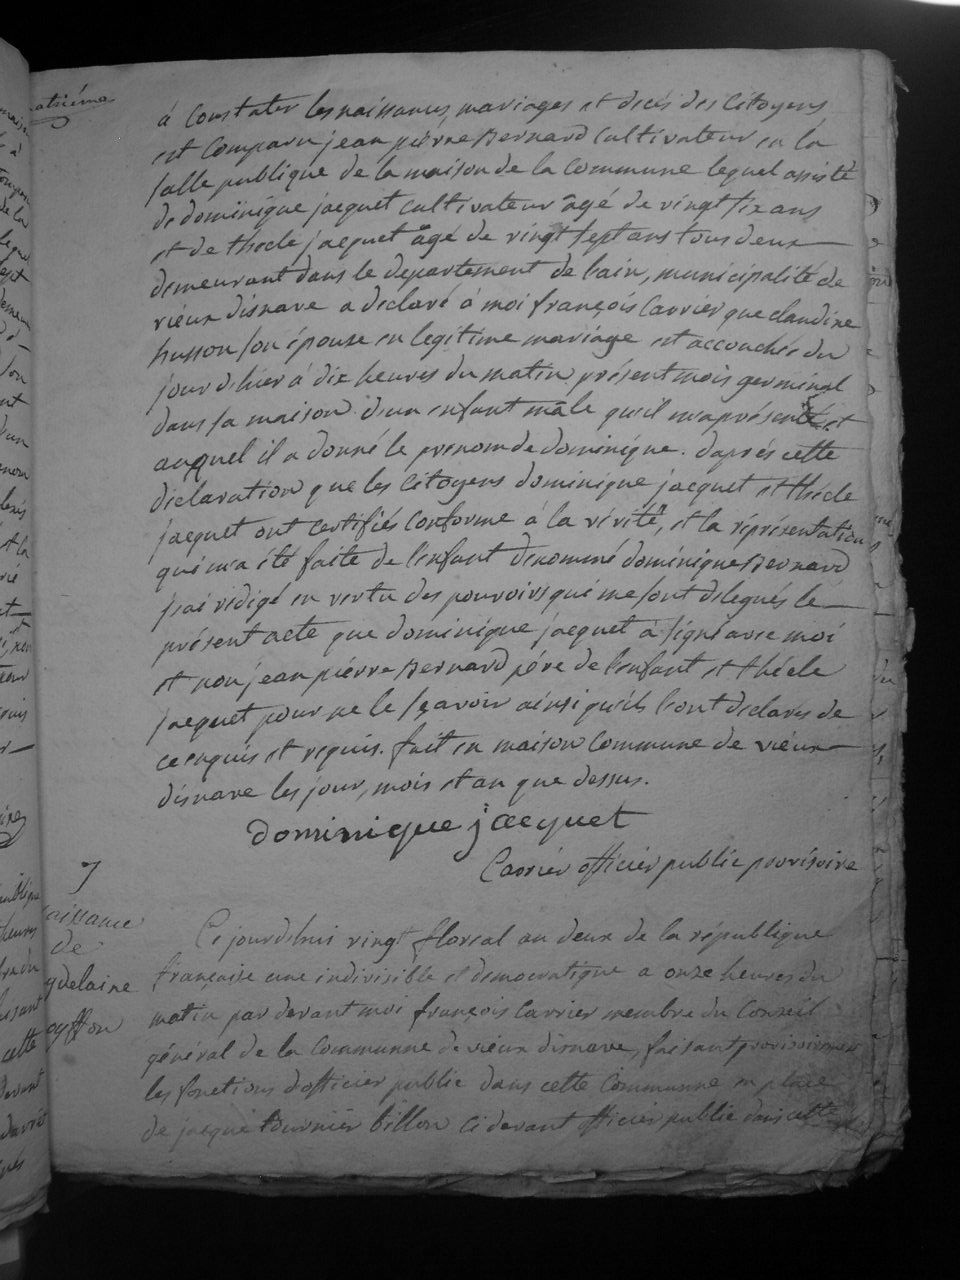 atriéme
à Constater les naissances, mariages et decés des Citoyens
est Comparu jean pièrre Bernard Cultivateur en la
salle publique de la maison de la Commune lequel assisté
de dominique jacquet Cultivateur âgé de vingt six ans
et de thecle jacquet âgé de vingt sept ans tous deux
demeurant dans le departement de lain, municipalité de
vieux disnave a déclaré à moi françois Carrier que claudine
husson son épouse en legitime mariage est accouchée du
jour dhier à dix heures du matin présent mois germinal
dans sa maison d'un enfant mâle qu'il m'a présenté et
auquel il a donné le prenom de dominique. daprès cette
déclaration que les Citoyens dominique jacquet et thécle
jacquet ont certifiés conforme à la vérité, et la réprésentation
qui m'a été faite de l'enfant dénommé dominique Bernard
j'ai rédigé en vertu des pouvoirs qui me sont délegués le
présent acte que dominique jacquet à signé avec moi
et non jean pièrre Bernard père de l'enfant et thécle
jacquet pour ne le sçavoir ainsi qu'ils l'ont déclarés de
ce enquis et requis. fait en maison Commune de vieux
disnave les jour, mois et an que dessus.
dominique jacquet
Carrier officier public provisoire
7
aissance
de
gdelaine
oyffon
Ce jourdhui vingt floreal an deux de la république
française une indivisible et democratique a onze heures du
matin par devant moi françois Carrier membre du Conseil
général de la Commune de vieux disnave, faisant provisoirement
les fonctions d'officier public dans cette Commune en place
de jacque tournier billon Ci devant officier public dans cette